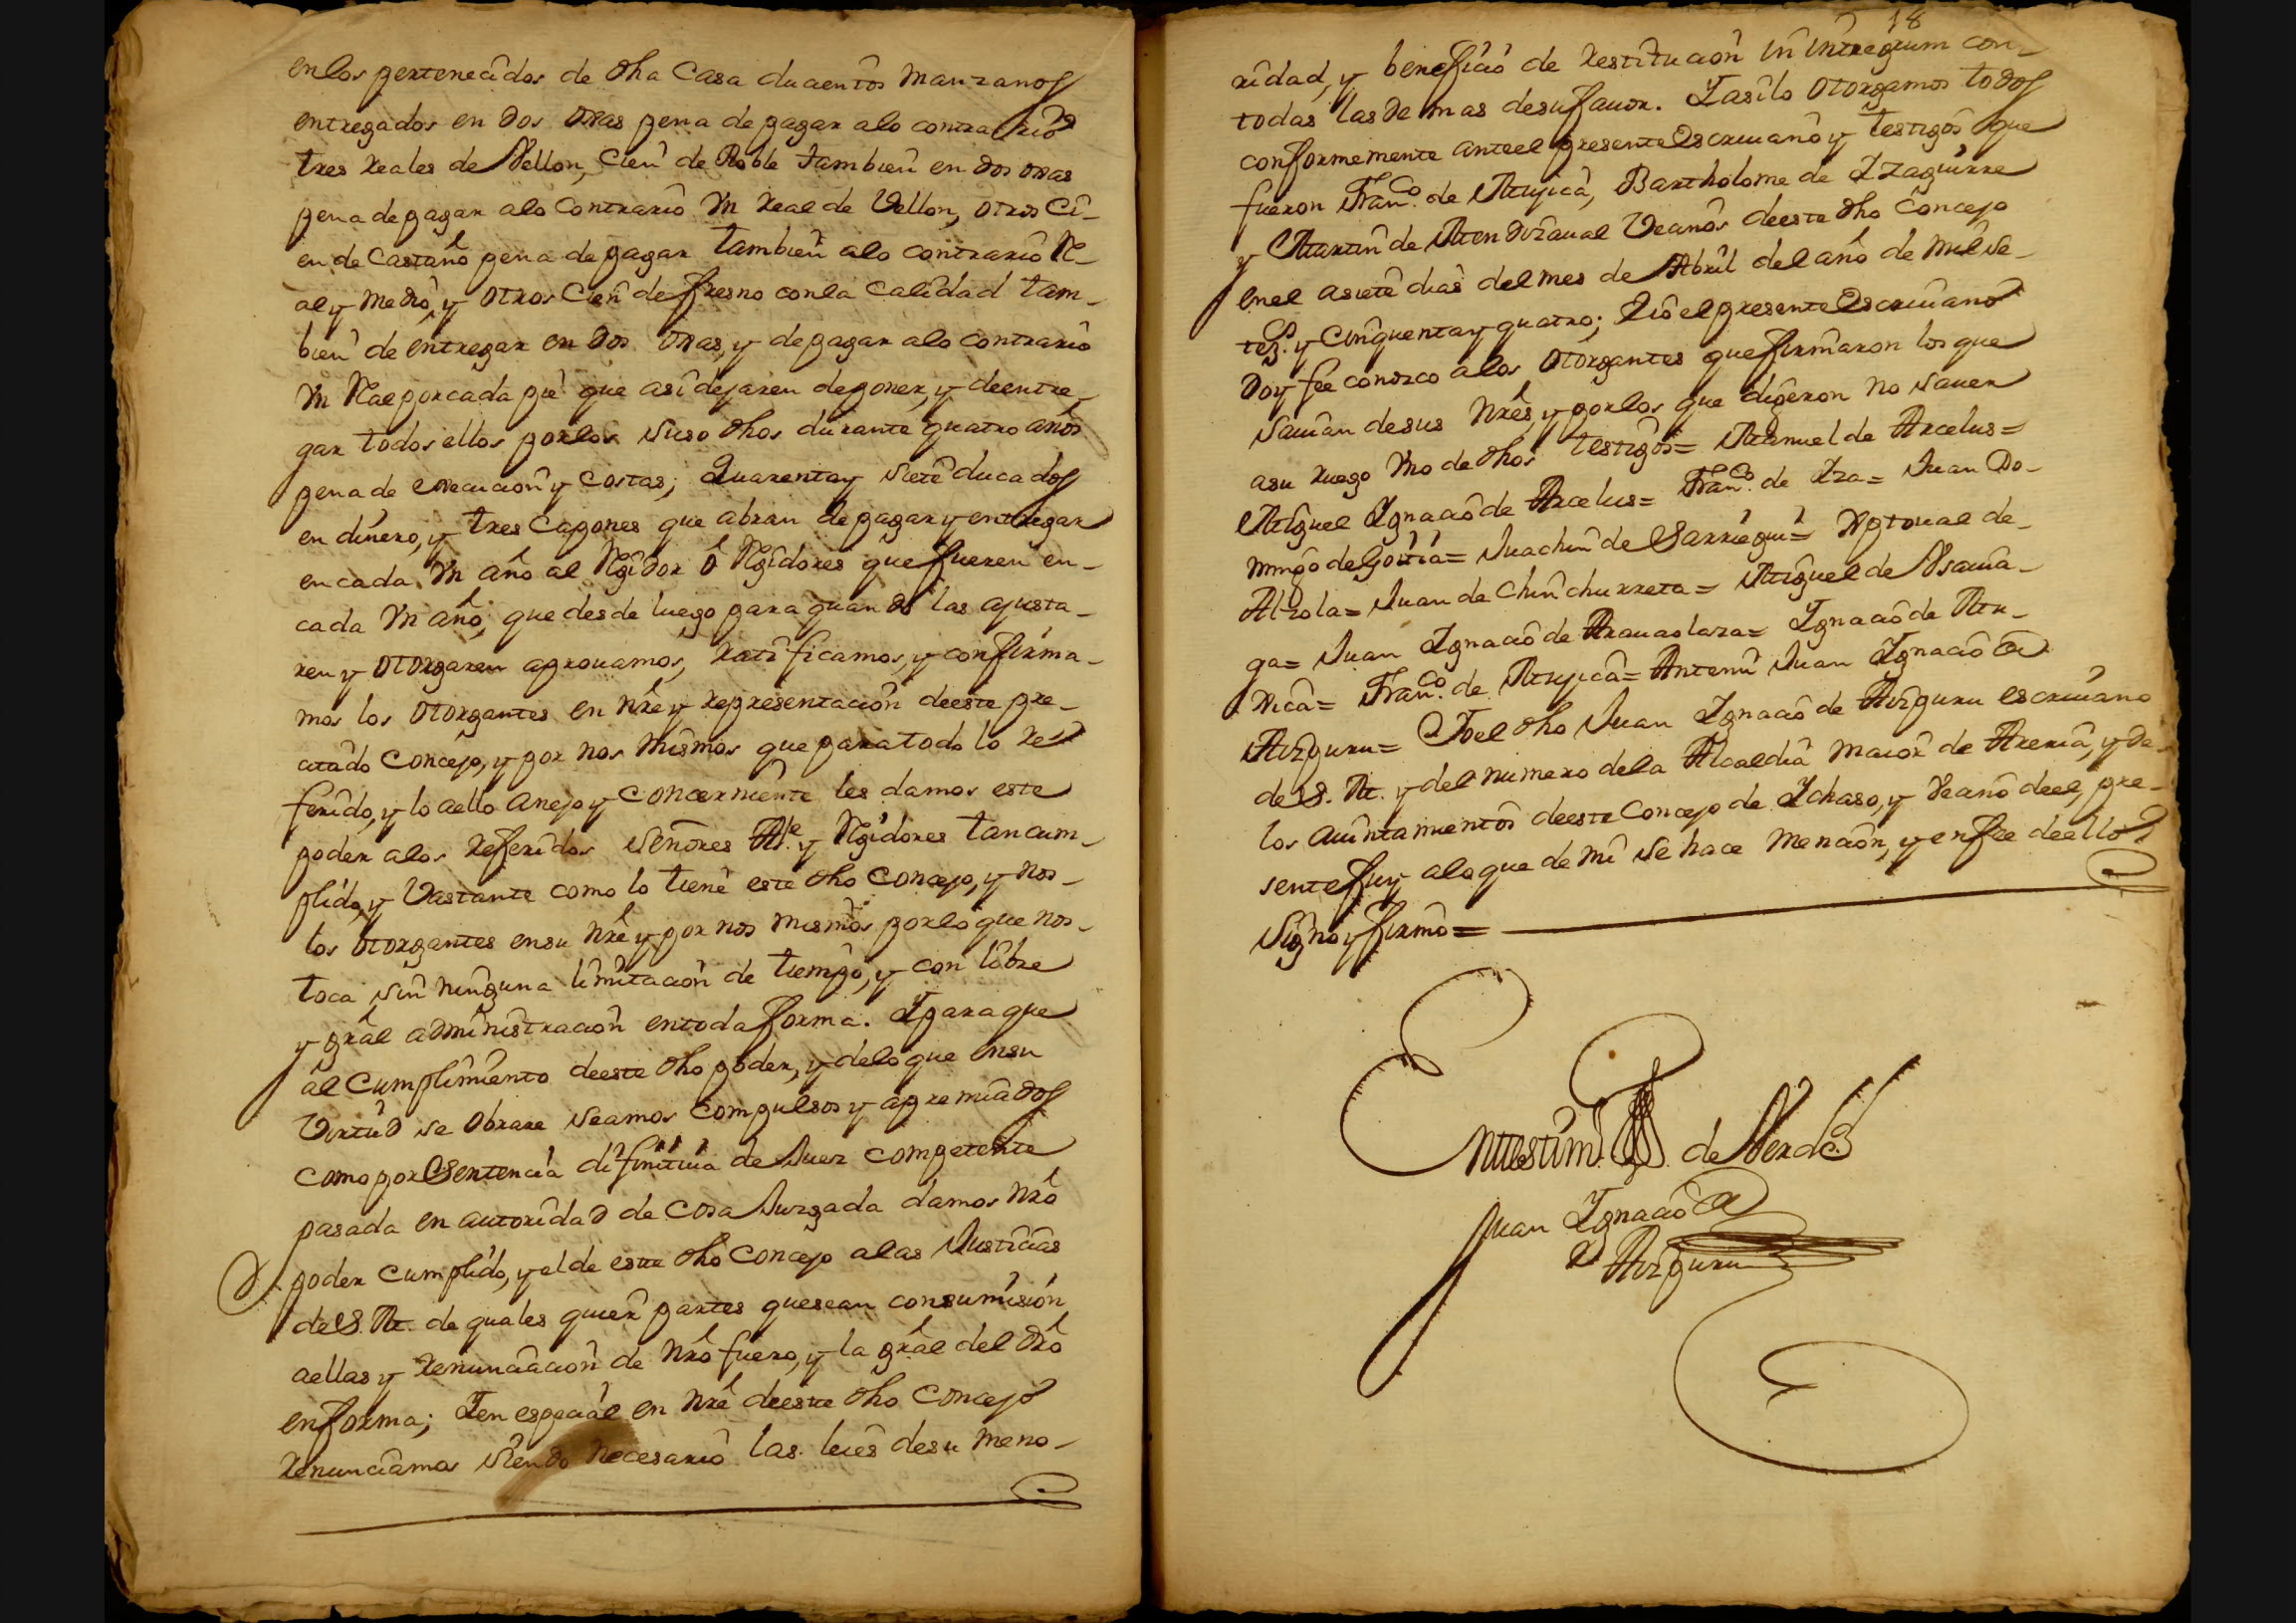 en los pertenecidos de dha Casa ducientos Manzanos
entregados en dos ojas pena de pagar alo contrario
tres reales de Vellon, Cien de Roble tambien en dos ojas
pena de pagar alo Contrario Vn real de Vellon, otros Ci-
en de Castaño pena de pagar tambien alo contrario Re-
al y medio, y otros Cien de fresno con la Calidad tam-
bien de entregar en dos ojas, y de pagar alo contrario
Vn Real por cada pie que asi dejaren de poner, y de entre-
gar todos ellos por los suso dhos durante quatro años
pena de execucion y costas; Quarenta y siete ducados
en dinero, y tres Capones que abran de pagar y entregar
en cada Vn año al Regidor ô Regidores que fueren en-
cada Vn año; que desde luego para quando las ajusta-
ren y otorgaren aprouamos, ratificamos, y confirma-
mos los otorgantes en Nre y representacion de este pre-
citado Concejo, y por nos mismos que para todo lo re-
ferido, y lo aello anejo y concerniente les damos este
poder alos referidos señores Alle. y Regidores tan cum-
plido, y Vastante como lo tiene este dho Concejo, y nos-
los otorgantes en su Nre y por nos mismos por lo que nos-
toca sin ninguna limitacion de tiempo, y con libre
y gral administracion en toda forma. Y para que
al Cumplimiento de este dho poder, y de lo que en su
Virtud se obrare seamos Compulsos y apremiados
como por Sentencia difinitiua de Juez competente
pasada en autoridad de Cosa Juzgada damos Nro
poder cumplido, y el de este dho Concejo a las Justicias
de S. M. de quales quier partes que sean con sumision
aellas y renunciacion de Nro fuero, y la gral del dro
en forma; Y en especial en Nre de este dho Concejo
renunciamos siendo necesario las leies de su meno-
18
ridad, y beneficio de restitucion in integrum con-
todas las de mas de su fauor. Y asi lo otorgamos todos
conformemente ante el presente Escriuano y testigos que
fueron Franco. de Mujica, Bartholome de Yzaguirre
y Martin de Mendizaual Vecinos de este dho Concejo
en el a siete dias del mes de Abril del año de mil se-
tez. y Cinquenta y quatro; Yio el presente Escriuano
doy fee conozco alos otorgantes que firmaron los que
sauian de sus Nres, y por los que digeron no sauer
a su ruego Vno de dhos testigos= Manuel de Arcelus=
Miguel Ygnacio de Arcelus= Franco. de Yza= Juan Do-
mingo de Goitia= Juachin de Sarriegui= Xptoual de-
Alzola= Juan de Chinchurreta= Miguel de Vsauia-
ga= Juan Ygnacio de Arauaolaza= Ygnacio de Mu-
xica= Franco. de Mujica= Antemi Juan Ygnacio de
Aizguru= Yo el dho Juan Ygnacio de Aizguru escriuano
de S. M. y del numero de la Alcaldia maior de Areria, y de
los auintamientos de este Concejo de Ychaso, y Vecino de el, pre-
sente fuy alo que de mi se hace mencion, y en fee de ello
signo y firmo=
En testim.o de Verdad
Juan Ygnacio
de Aizguru